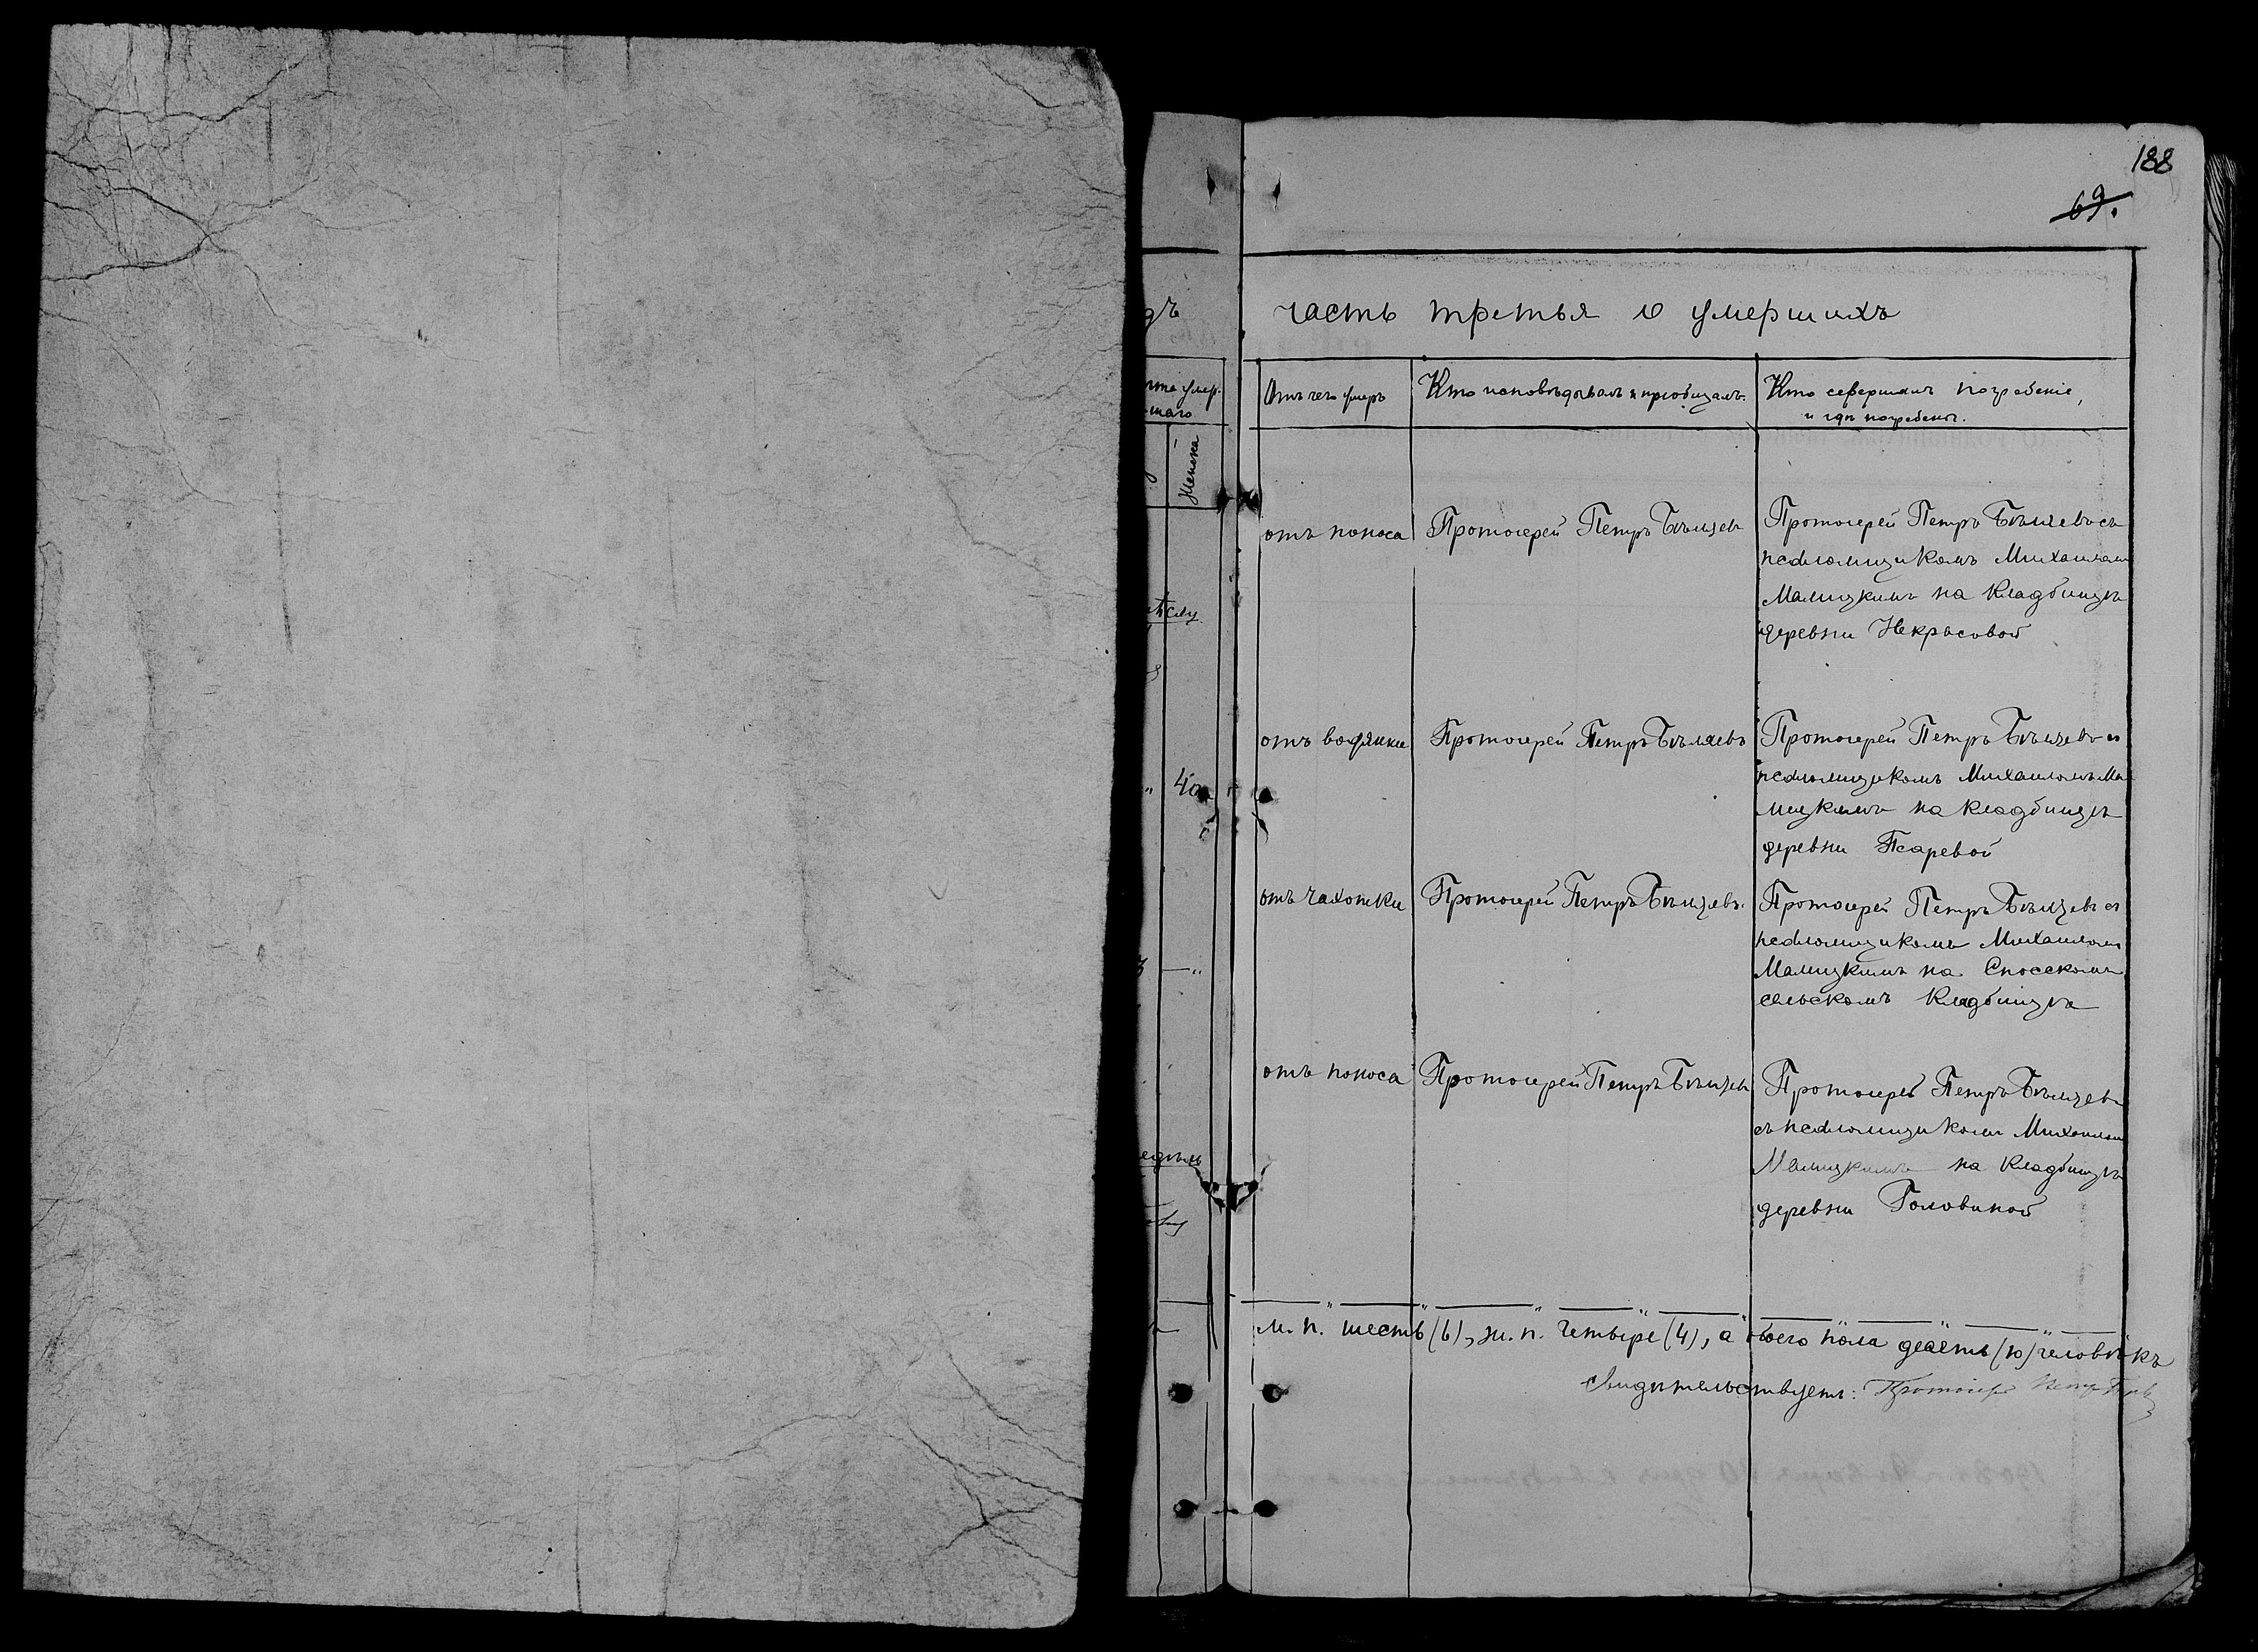 188
69.
часть третья о умершихъ
Отъ чего умеръ
Кто исповѣдывалъ и пріобщалъ.
Кто совершалъ погребеніе,
и гдѣ погребенъ.
Женска
отъ поноса
Протоіерей Петръ Бѣляевъ
Протоіерей Петръ Бѣляевъ съ
псаломщикомъ Михаиломъ
Малицкимъ на кладбищѣ
деревни Некрасовой
отъ водянки
Протоіерей Петръ Бѣляевъ
Протоіерей Петръ Бѣляевъ съ
псаломщикомъ Михаиломъ Ма
лицкимъ на кладбищѣ
деревни Псаревой
40
отъ чахотки
Протоіерей Петръ Бѣляевъ.
Протоіерей Петръ Бѣляевъ съ
псаломщикомъ Михаиломъ
Малицкимъ на Спасскомъ
сельскомъ кладбищѣ
отъ поноса
Протоіерей Петръ Бѣляевъ
Протоіерей Петръ Бѣляевъ
съ псаломщикомъ Михаиломъ
Малицкимъ на кладбищѣ
деревни Головиной
м. п. шесть (6), ж. п. четыре (4), а обоего пола десять (10) человѣкъ
Свидѣтельствуетъ: Протоіерей Петръ